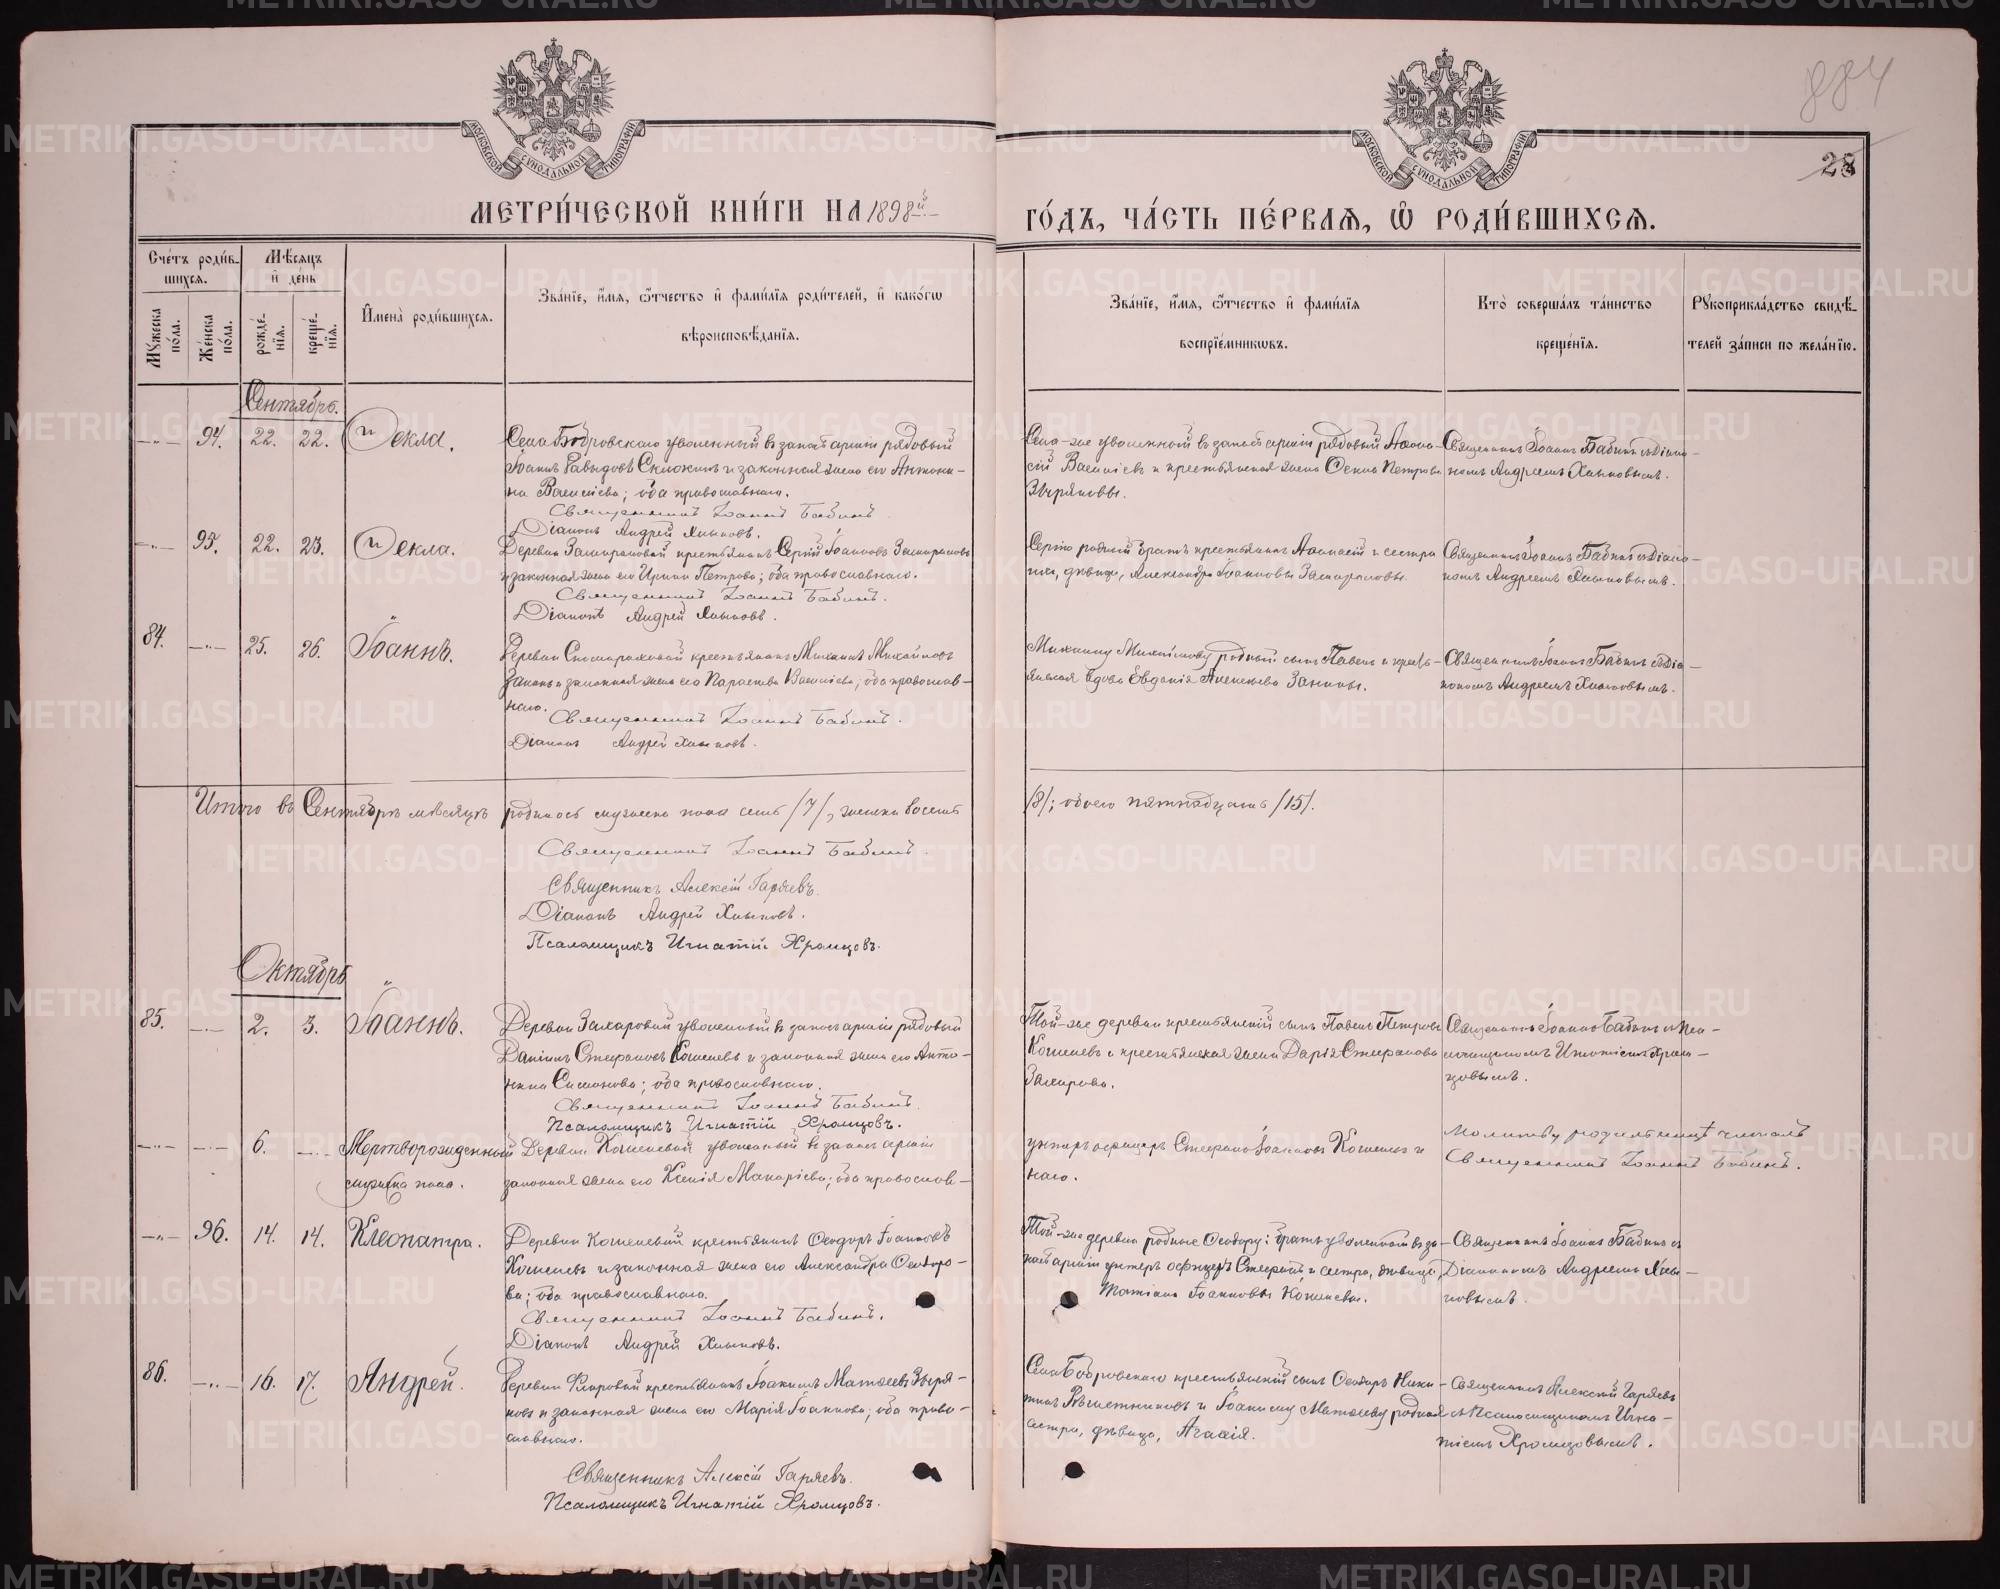 884
28
МОСКОВСКОЙ СѴНОДАЛЬНОЙ ТИПОГРАФІИ
МОСКОВСКОЙ СѴНОДАЛЬНОЙ ТИПОГРАФІИ
МЕТРИ́ЧЕСКОЙ КНИ́ГИ НА 1898й
ГО́ДЪ, ЧА́СТЬ ПЕ́РВАѦ, Ѡ҆ РОДИ́ВШИХСѦ.
Сче́тъ роди́в-
шихсѧ.
Мѣ́сѧцъ
и҆ де́нь
Мꙋжеска по́ла.
Же́нска по́ла.
рожде́нїѧ.
креще́нїѧ.
И҆мена̀ роди́вшихсѧ.
Зва́нїе, и҆́мѧ, ѻ҆́тчество и҆ фами́лїѧ роди́телей, и҆ како́гѡ
вѣроисповѣ́данїѧ.
Зва́нїе, и҆́мѧ, ѻ҆́тчество и҆ фами́лїѧ
воспрїе́мникѡвъ.
Кто̀ соверша́лъ та́инство
креще́нїѧ.
Рꙋкоприкла́дство свидѣ́-
телей за́писи по жела́нїю.
Сентябрь.
94. 22. 22. Ѳекла.
Села Бобровскаго уволенный въ запасъ арміи рядовый
Іоаннъ Давыдовъ и законная жена его Антони-
на Васильева; оба православнаго.
Священникъ Іоаннъ Бабинъ.
Діаконъ Андрей Хлыновъ.
Села-же уволенный въ запасъ арміи рядовый Аѳана-
сій Васильевъ и крестьянская жена Петрова
Зыряновы.
Священникъ Іоаннъ Бабинъ съ Діако-
номъ Андреемъ Хлыновымъ.
95. 22. 23. Ѳекла.
Деревни крестьянинъ Сергій Іоанновъ
и законная жена его Ирина Петрова; оба православнаго.
Священникъ Іоаннъ Бабинъ.
Діаконъ Андрей Хлыновъ.
Сергію родный братъ крестьянинъ Аѳанасій и сестра
дѣвица, Александра Іоанновы
Священникъ Іоаннъ Бабинъ съ Діако-
номъ Андреемъ Хлыновымъ.
84. 25. 26. Іоаннъ.
Деревни крестьянинъ Михаилъ Михайловъ
и законная жена его Параскева Васильева; оба православ-
наго.
Священникъ Іоаннъ Бабинъ.
Діаконъ Андрей Хлыновъ.
Михаилу Михайлову родный сынъ Павелъ и кресть-
янская вдова Евдокія
Священникъ Іоаннъ Бабинъ съ Діа-
кономъ Андреемъ Хлыновымъ.
Итого въ Сентябрѣ мѣсяцѣ родилось мужеска пола семь /7/, женска восемь
/8/; обоего пятнадцать /15/.
Священникъ Іоаннъ Бабинъ.
Священникъ Алексій Гаряевъ.
Діаконъ Андрей Хлыновъ.
Псаломщикъ Игнатій Хромцовъ.
Октябрь
85. 2. 3. Іоаннъ.
Деревни Захаровой уволенный въ запасъ арміи рядовый
Даніилъ Стефановъ Кошелевъ и законная жена его Анто-
нина Симонова; оба православнаго.
Священникъ Іоаннъ Бабинъ.
Псаломщикъ Игнатій Хромцовъ.
Той-же деревни крестьянскій сынъ Павелъ Петровъ
Кошелевъ и крестьянская жена Дарія Стефанова
Захарова.
Священникъ Іоаннъ Бабинъ съ Пса-
ломщикомъ Игнатіемъ Хром-
цовымъ.
6. Мертворожденный
мужска пола.
Деревни Кошелевой уволенный въ запасъ арміи
законная жена его Ксенія Макаріева; оба православ-
унтеръ офицеръ Стефанъ Іоанновъ Кошелевъ и
наго.
Молитву родильницѣ читалъ
Священникъ Іоаннъ Бабинъ.
96. 14. 14. Клеопатра.
Деревни Кошелевой крестьянинъ Ѳеодоръ Іоанновъ
Кошелевъ и законная жена его Александра Ѳеодоро-
ва; оба православнаго.
Священникъ Іоаннъ Бабинъ.
Діаконъ Андрей Хлыновъ.
Той-же деревни родные Ѳеодору: братъ уволенный въ за-
пасъ арміи унтеръ офицеръ Стефанъ и сестра, дѣвица,
Татіана Іоанновы Кошелевы.
Священникъ Іоаннъ Бабинъ съ
Діакономъ Андреемъ Хлы-
новымъ.
86. 16. 17. Андрей.
Деревни крестьянинъ Іоакимъ Матѳеевъ Зыря-
новъ и законная жена его Марія Іоаннова; оба право-
славнаго.
Священникъ Алексій Гаряевъ.
Псаломщикъ Игнатій Хромцовъ.
Села Бобровскаго крестьянскій сынъ Ѳеодоръ Ники-
тинъ Рѣшетниковъ и Іоакиму Матѳееву родная
сестра, дѣвица, Агаѳія.
Священникъ Алексій Гаряевъ
съ Псаломщикомъ Игна-
тіемъ Хромцовымъ.
METRIKI.GASO-URAL.RU